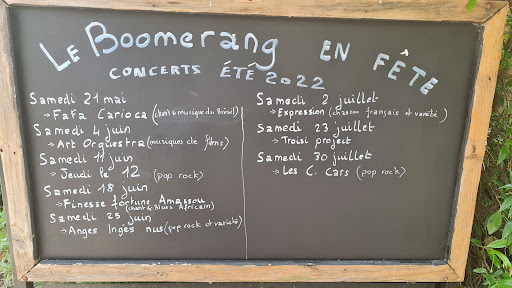 Le Boomerang EN FÊTE
CONCERTS ÉTÉ 2022
Samedi 21 mai
→ FaFa Carioca (chant & musique du Brésil)
Samedi 4 juin
→ Art Orquestra (musiques de films)
Samedi 11 juin
→ Jeudi le 12 (pop rock)
Samedi 18 juin
→ Finesse fortune Amassou
(chant & blues Africain)
Samedi 25 juin
→ Anges Ingés nus (pop rock et variété)
Samedi 2 juillet
→ Expression (chanson français et variété)
Samedi 23 juillet
→ Troisi project
Samedi 30 juillet
→ Les C. Cars (pop rock)